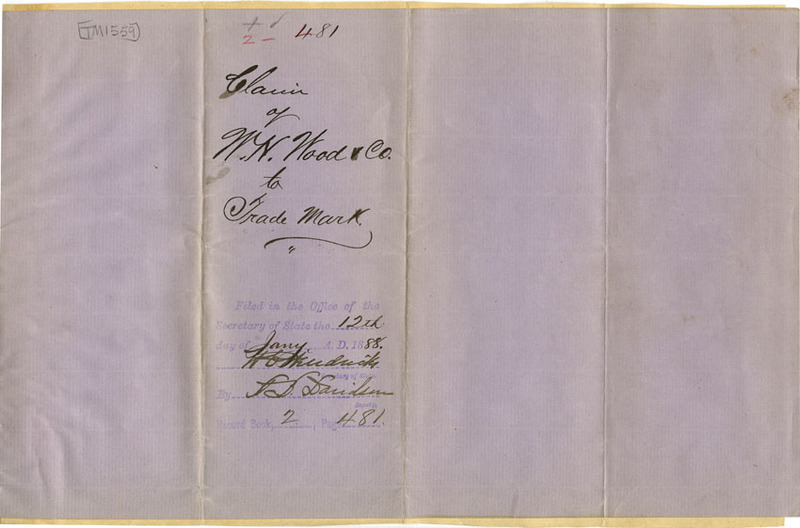 [TM1559]
2 - 481
Claim
of
W. N. Wood & Co.
to
Trade Mark.
"
Filed in the Office of the
Secretary of State the 12th
day of Jany A. D. 1888.
W C Hendricks
Secretary of State
By A. D. Davidson
Deputy
Record Book, 2, Page 481.